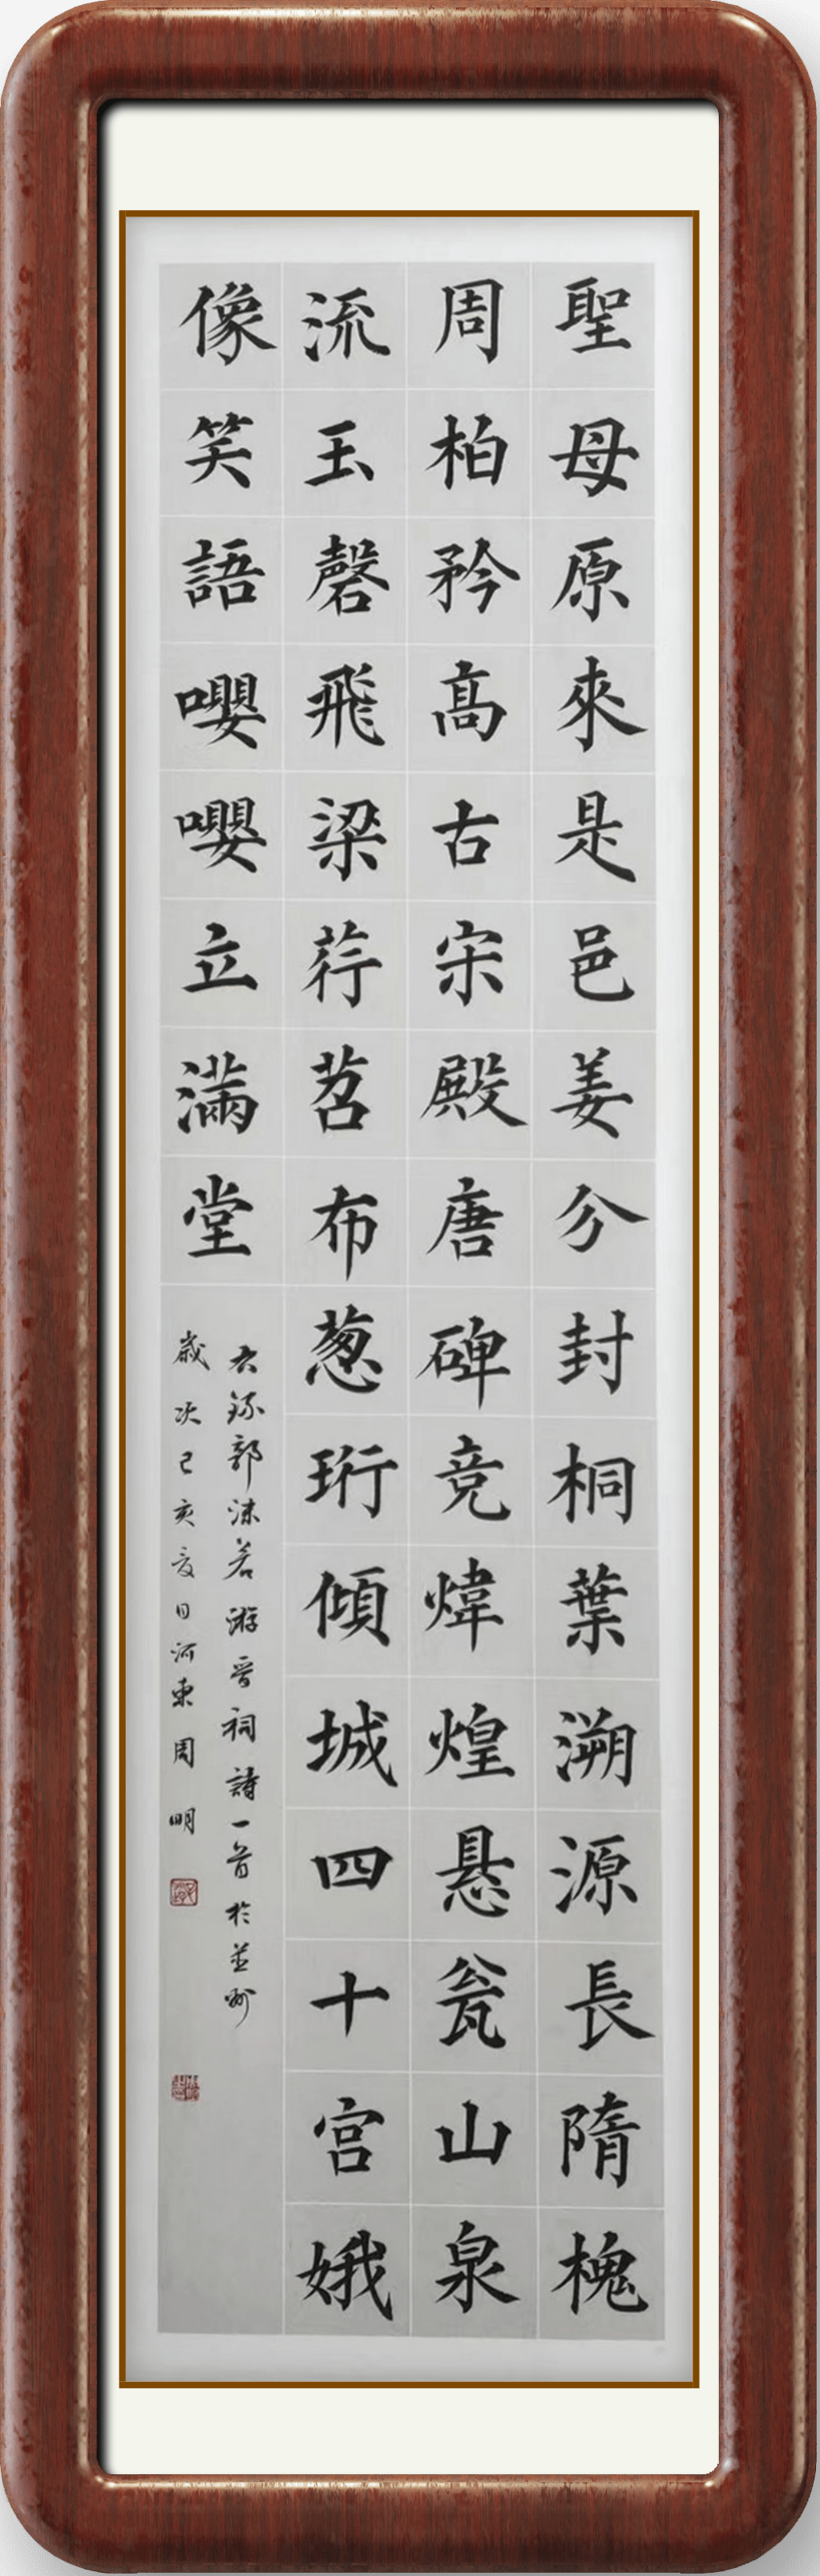 聖母原來是邑姜分封桐葉溯源長隋槐
周柏矜高古宋殿唐碑竞煒煌悬瓮山泉
流玉磬飛梁荇苕布葱珩傾城四十宫娥
像笑語嚶嚶立滿堂
右録郭沫若游晋祠詩一首於並州
歲次己亥夏日河東周明